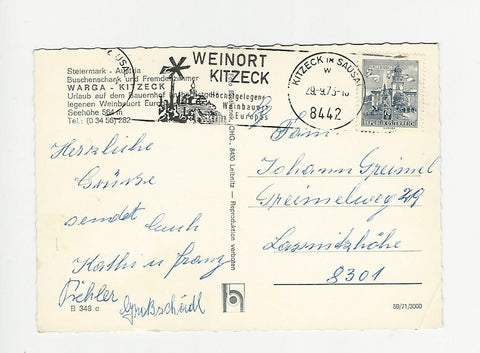 Steiermark - Austria
Buschenschank und Fremdenzimmer
WARGA - KITZECK
Urlaub auf dem Bauernhof in
legenen Weinbauort Euro
Seehöhe 564 m
Tel.: (0 34 56) 282
WEINORT
KITZECK
Höchstgelegener
Weinbauort
Europas
KITZECK IM SAUSAL
8442
REPUBLIK ÖSTERREICH
Herzliche
Grüße
sendet Euch
Kathi u franz
Pichler
Großschädl
B 348 c
8430 Leibnitz — Reproduktion verboten
Fam.
Johann Greimel
Greimelweg 29
Lassnitzhöhe
8301
b
89/71/5000